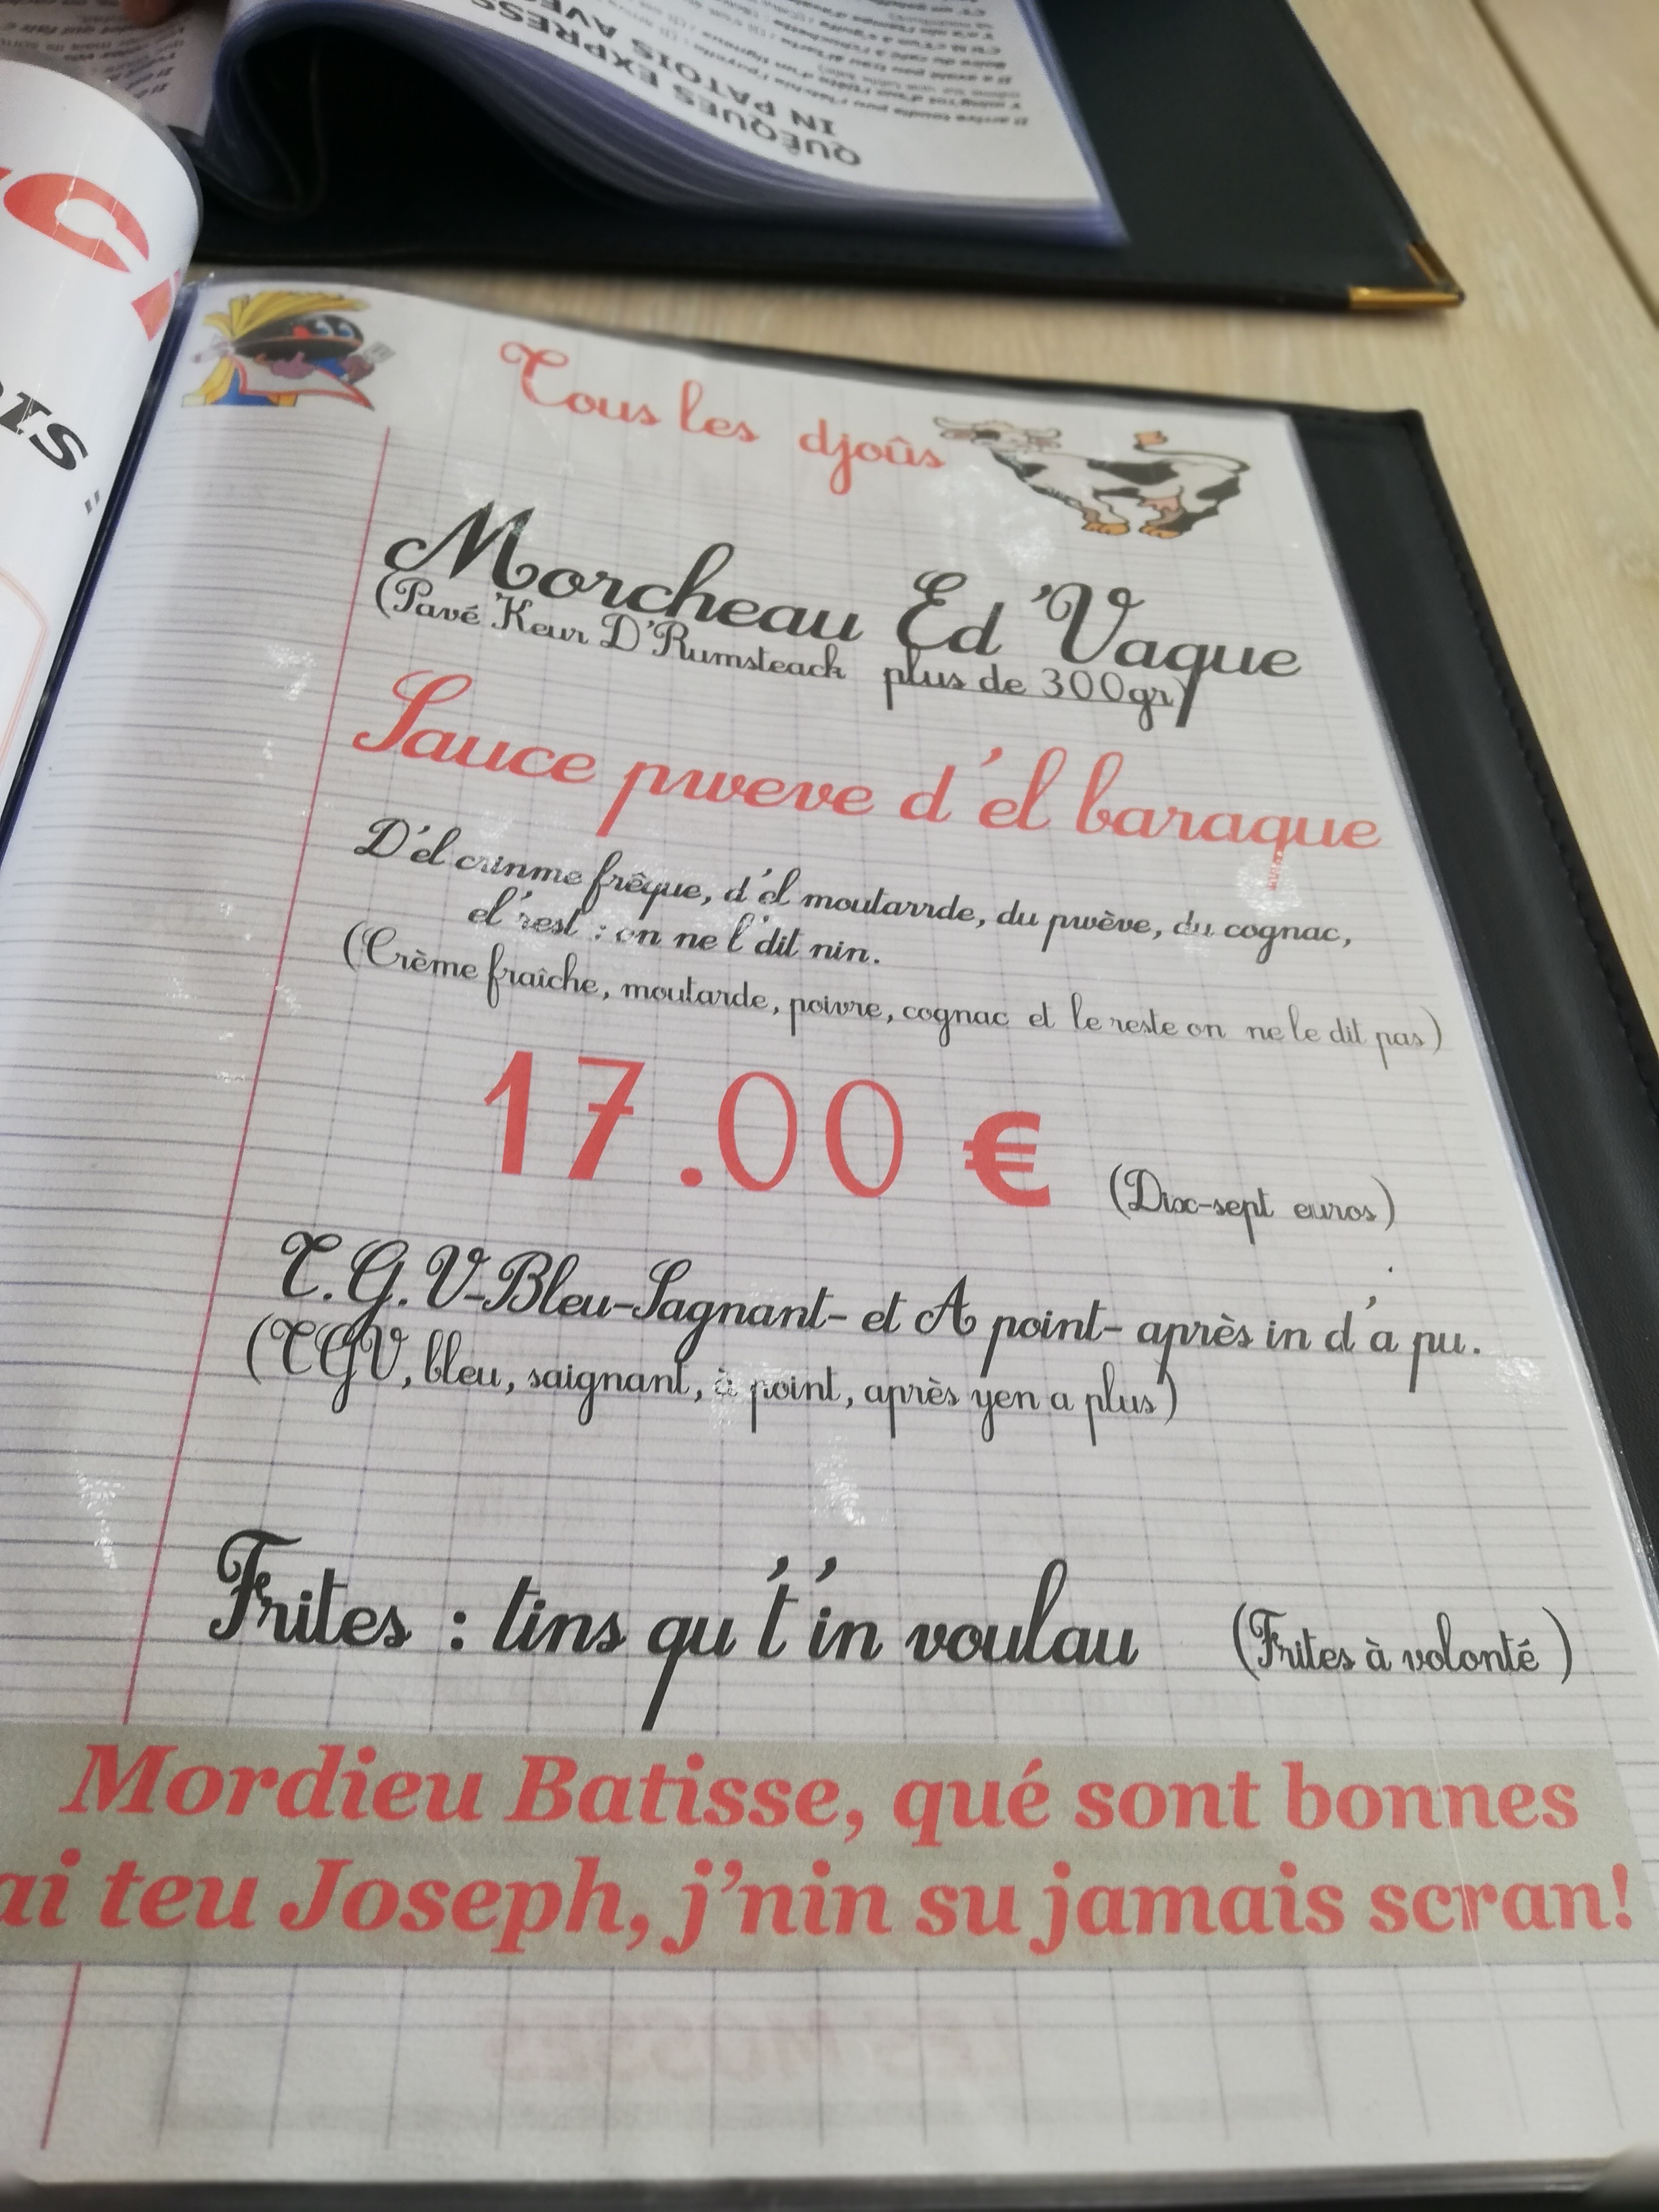 QUÈQUES EXPRESS
IN PATOIS AVE
ÔIS
"
Tous les djoûs
Morcheau Ed'Vaque
(Pavé Keur D'Rumsteack plus de 300gr)
Sauce pweve d'el baraque
D'el crinme frêque, d'el moutarrde, du pwève, du cognac,
el'rest : on ne l'dit nin.
(Crème fraîche, moutarde, poivre, cognac et le reste on ne le dit pas)
17.00 €
(Dix-sept euros)
T.G.V-Bleu-Sagnant- et A point- après in d'a pu.
(TGV, bleu, saignant, à point, après yen a plus)
Frites : tins qu't'in voulau
(Frites à volonté )
Mordieu Batisse, qué sont bonnes
ai teu Joseph, j'nin su jamais scran!